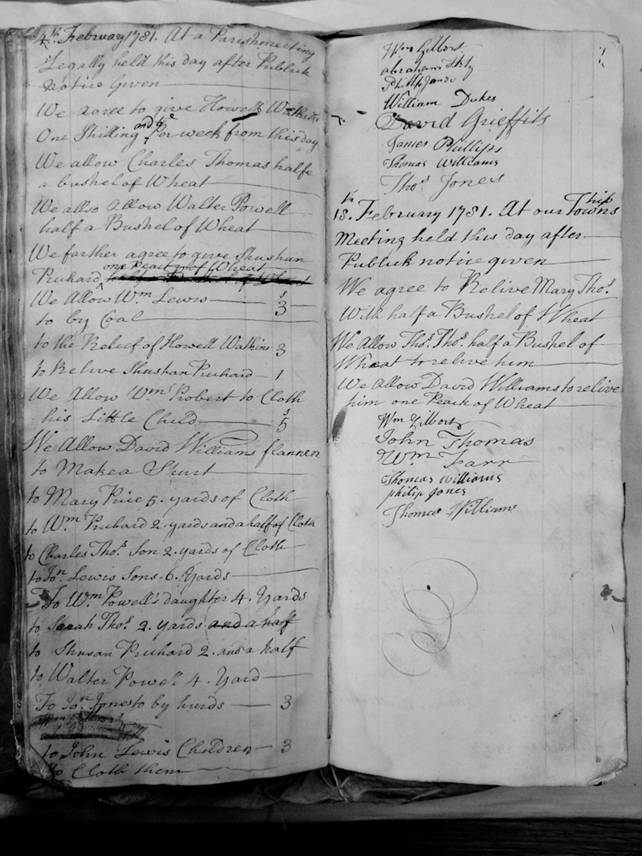 4th February 1781. At a Parish meeting
Legally held this day after Publick
notice Given
We agree to give Howell Watkin
One Shilling and 6d Per week from this day
We allow Charles Thomas halfe
a bushel of Wheat
We allso Allow Walter Powell
half a Bushel of Wheat
We farther agree to give Shushan
Prichard one Peact of Wheat
We Allow Wm Lewis s
to by Coal 3
to the Relief of Howell Watkins 3
to Relive Shushan Prichard 1
We Allow Wm Probert to Cloth s
his Little Child 5
We Allow David Williams flannen
to Make a Shurt
to Mary Price 5. yards of Cloth
to Wm Prichard 2. yards and a half of Cloth
to Charles Thos Son 2. yards of Cloth
to Jon Lewis Sons 6. Yards
To Wm Powell's daughter 4. Yards
to Sarah Thos 2. Yards and a half
to Shusan Prichard 2. and a half
to Walter Powel 4. Yard
To Jon Jones to by hurds 3
to John Lewis Children 3
to Cloth them
Wm Gilbort
abraham
Phillip Jones
William Dukes
David Grieffits
James Phillips
Thomas Williams
Thos Jones
18th February 1781. At our Township
Meeting held this day after
Publick notice given
We agree to Relive Mary Thos
With half a Bushel of Wheat
We Allow Thos Thos half a Bushel of
Wheat to relive him
We Allow David Williams to relive
him one Peack of Wheat
Wm Gilbort
John Thomas
Wm Farr
Thomas Williams
philip Jones
Thomas Williams